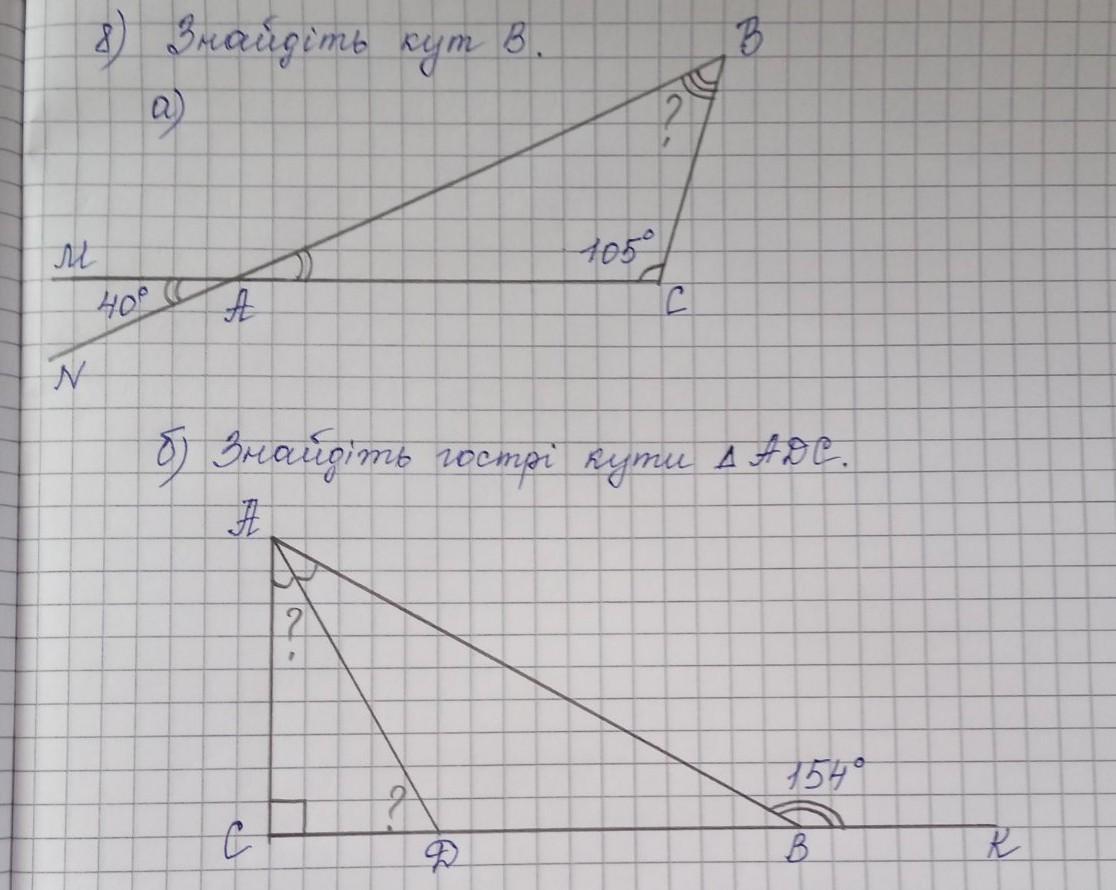 8) Знайдіть кут B.
а)
B
?
105°
M
40°
A
C
N
б) Знайдіть гострі кути Δ ADC.
A
?
154°
?
C
D
B
K